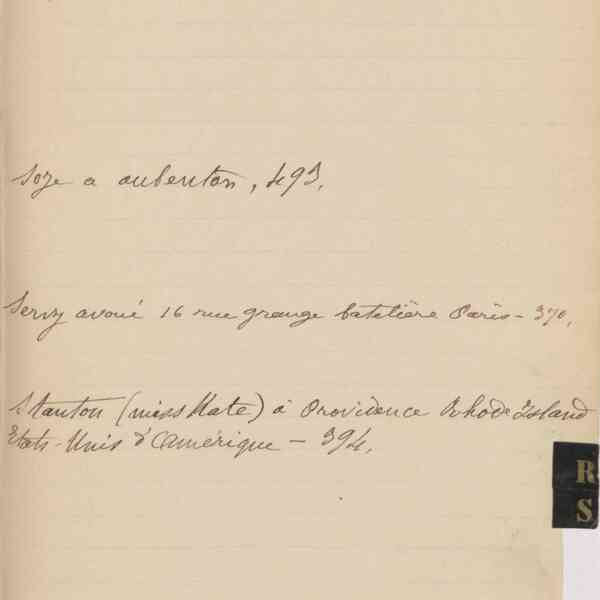 Soze a aubenton, 493,
Servy avoué 16 rue grange batelière Paris - 370,
Stanton (miss Kate) à Providence Rhode Island
Etats-Unis d'Amérique - 394,
R
S